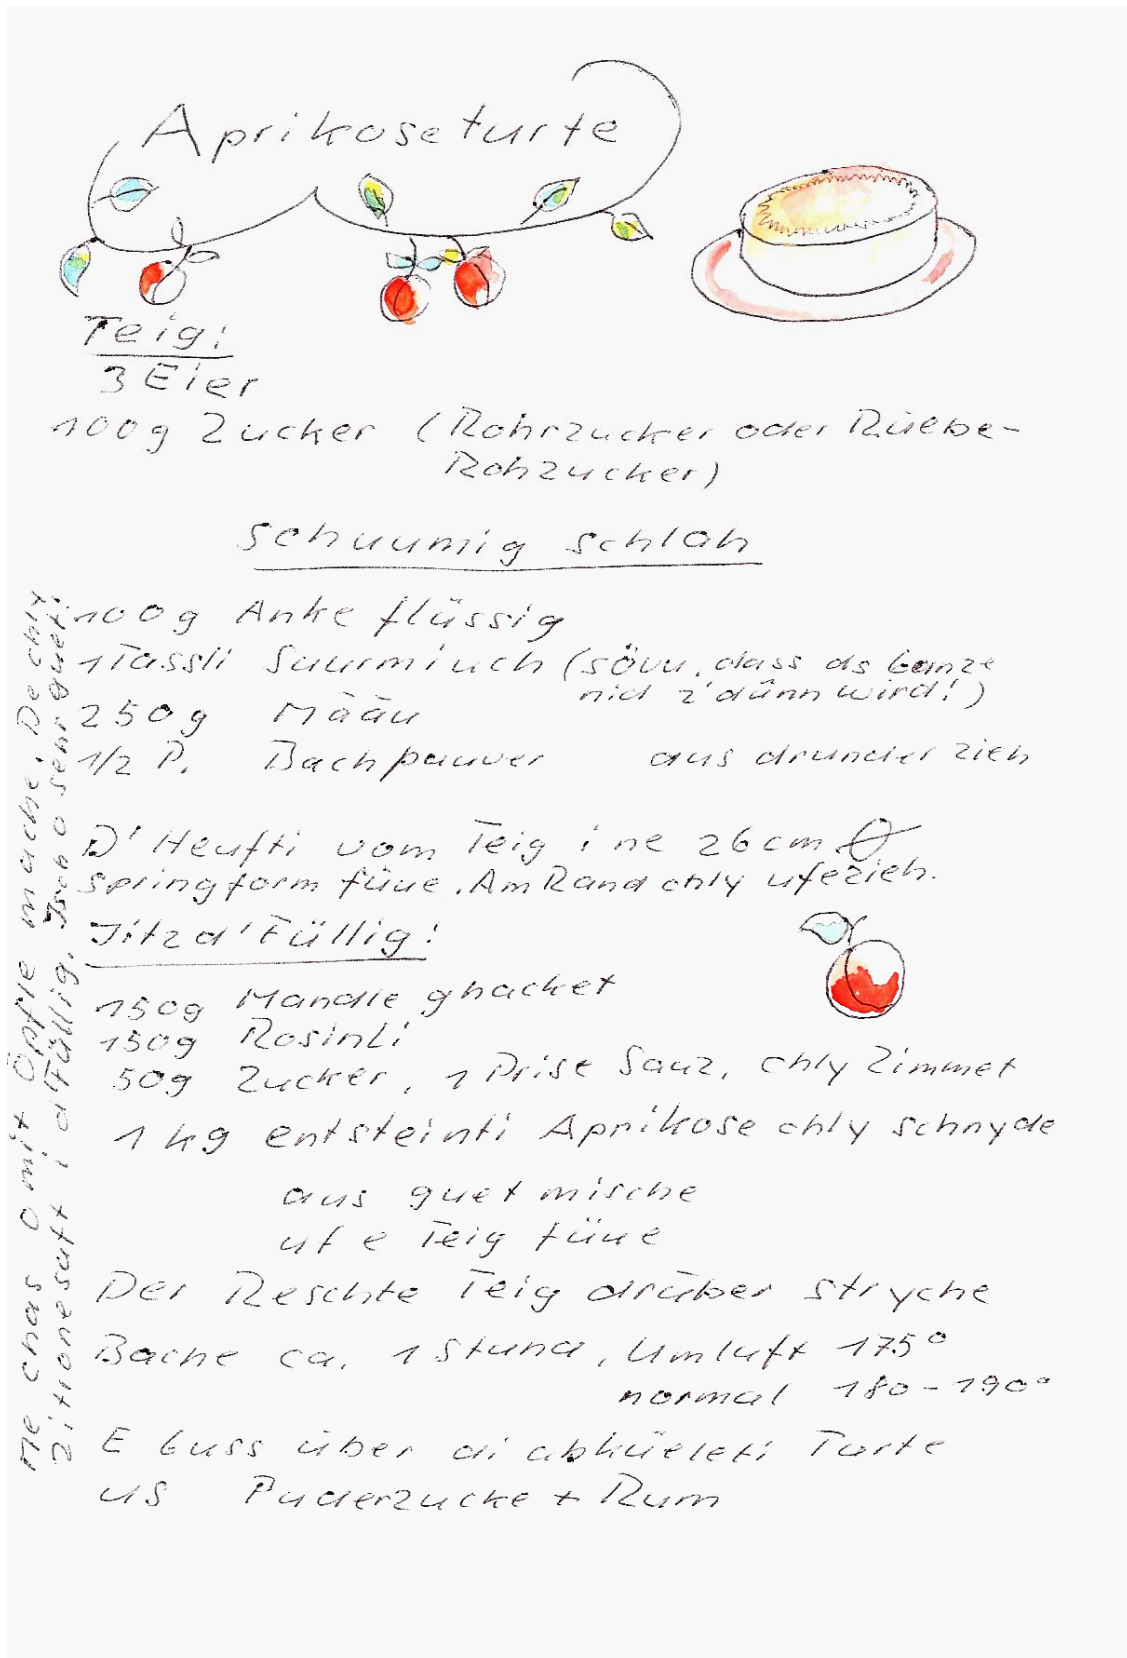 Aprikoseturte
Teig:
3 Eier
100g Zucker (Rohrzucker oder Rüebe-
Rohzucker)
schuumig schlah
100g Anke flüssig
1 Tassli Suurmiuch (söuu, dass ds Ganze
nid z'dünn wird!)
250g Määu
1/2 P. Bachpauver aus drunder zieh
D'Heufti vom Teig i ne 26cm Ø
Springform füue. Am Rand chly ufezieh.
Jitz d'Füllig:
150g Mandle ghacket
150g Rosinli
50g Zucker, 1 Prise Sauz, chly Zimmet
1 kg entsteinti Aprikose chly schnyde
aus guet mische
uf e Teig füue
Der Reschte Teig drüber stryche
Bache ca. 1 Stund, Umluft 175°
normal 180-190°
E Guss über di abküeleti Turte
us Puderzucke + Rum
Me chas o mit Öpfle mache. De chly
Zitronesaft i d'Füllig. Isch o sehr guet!